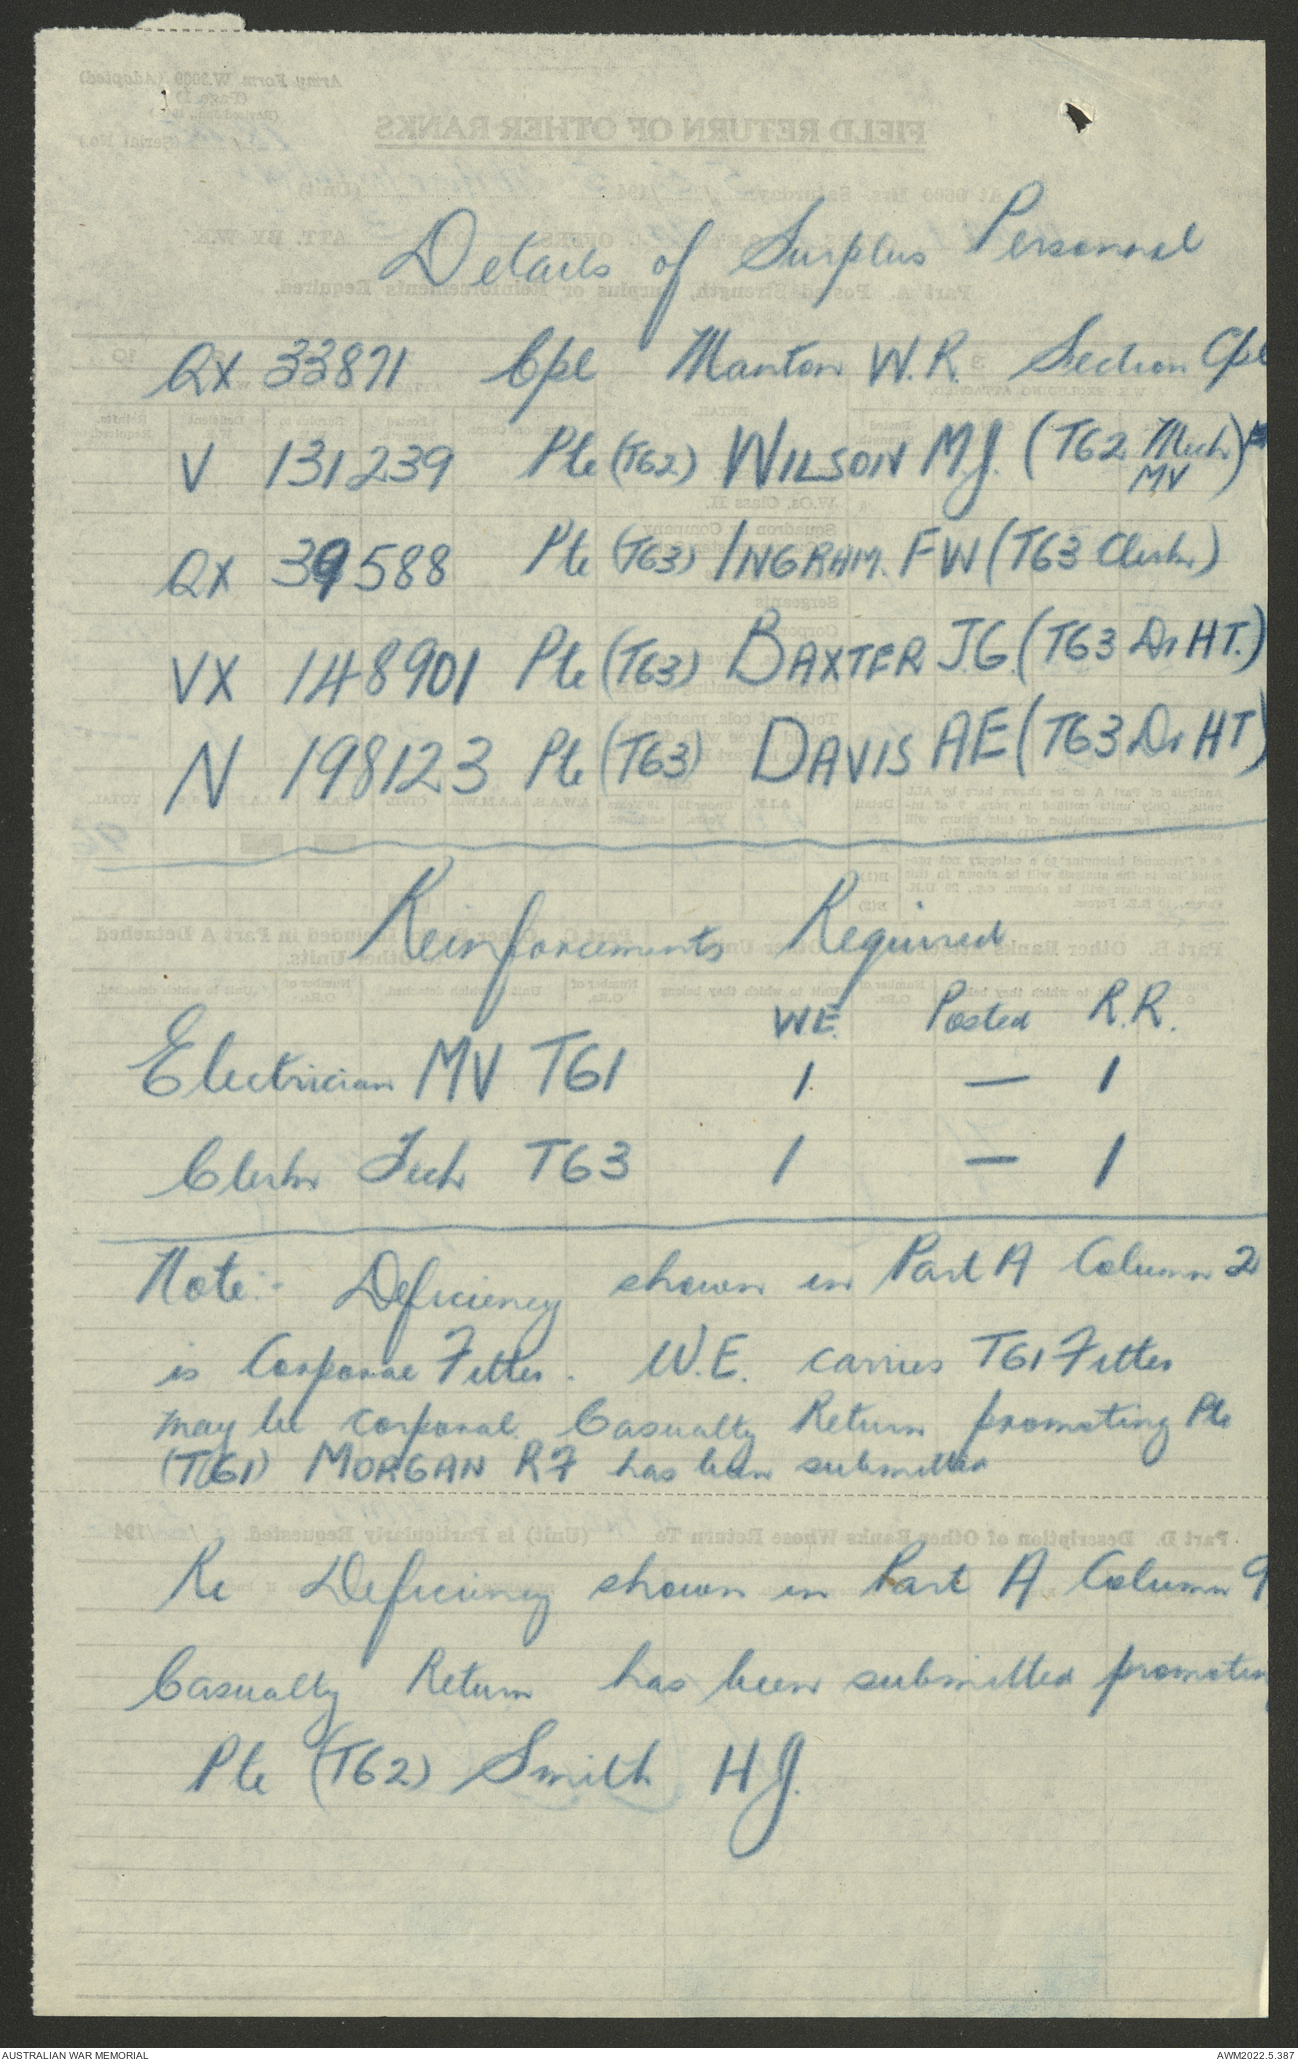 Details of Surplus Personnel
QX 33871 Cpl Manton W.R. Section Cpl
V 131239 Pte (T62) WILSON M.J. (T62 Mech)
MV
QX 39588 Pte (T63) INGRAM. FW (T63 Clerk)
VX 148901 Pte (T63) BAXTER J.G. (T63 Dr HT.)
N 198123 Pte (T63) DAVIS AE (T63 Dr HT)
Reinforcements Required
W.E. Posted R.R.
Electrician MV T61 1 — 1
Clerk Tech T63 1 — 1
Note:- Deficiency shown in Part A Column 2
is Corporal Fitter. W.E. carries T61 Fitter
may be corporal. Casualty Return promoting Pte
(T61) MORGAN R F has been submitted
Re Deficiency shown in Part A Column 9
Casualty Return has been submitted promoting
Pte (T62) Smith H J.
AUSTRALIAN WAR MEMORIAL
AWM2022.5.387